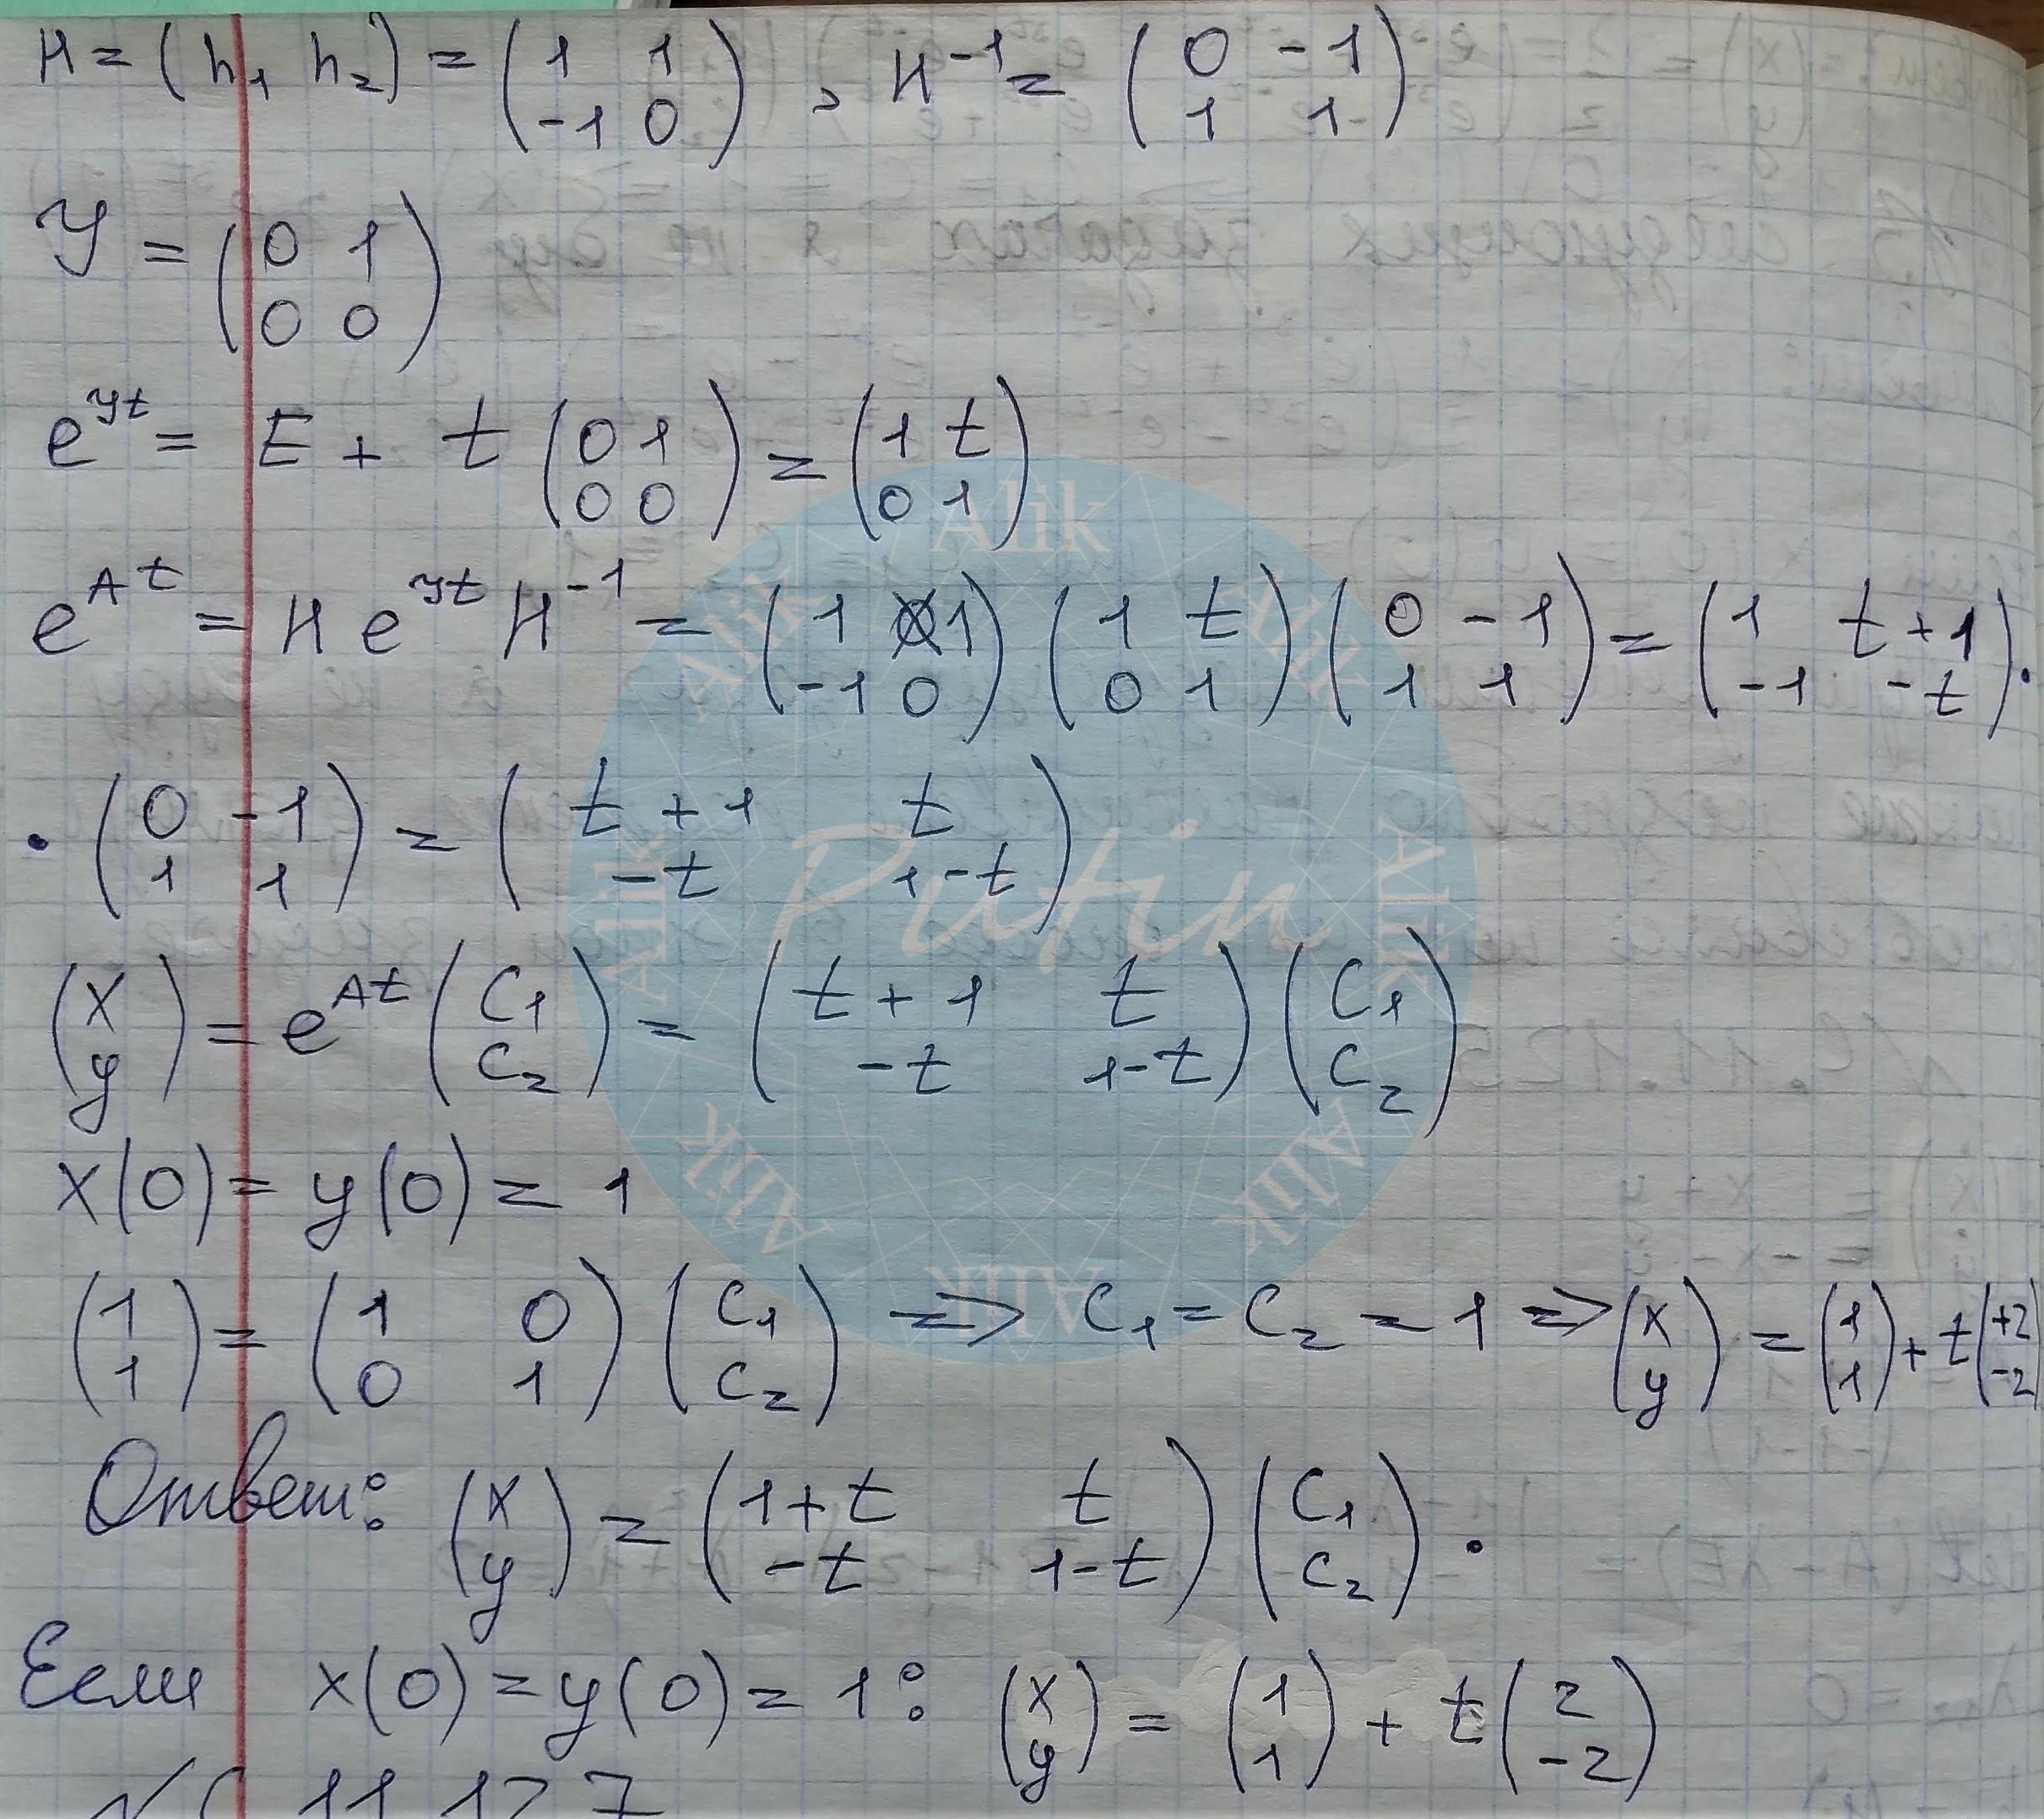 H = (h₁ h₂) = (1 1; -1 0), H⁻¹ = (0 -1; 1 1)
Y = (0 1; 0 0)
e^{Yt} = E + t (0 1; 0 0) = (1 t; 0 1)
e^{At} = H e^{Yt} H⁻¹ = (1 1; -1 0) (1 t; 0 1) (0 -1; 1 1) = (1 t+1; -1 -t) ·
· (0 -1; 1 1) = (t+1 t; -t 1-t)
(x; y) = e^{At} (C₁; C₂) = (t+1 t; -t 1-t) (C₁; C₂)
x(0) = y(0) = 1
(1; 1) = (1 0; 0 1) (C₁; C₂) => C₁ = C₂ = 1 => (x; y) = (1; 1) + t (+2; -2)
Ответ: (x; y) = (1+t t; -t 1-t) (C₁; C₂).
Если x(0) = y(0) = 1: (x; y) = (1; 1) + t (2; -2)
Alik
Alik
Alik
Alik
Alik
Alik
Alik
Alik
Putin